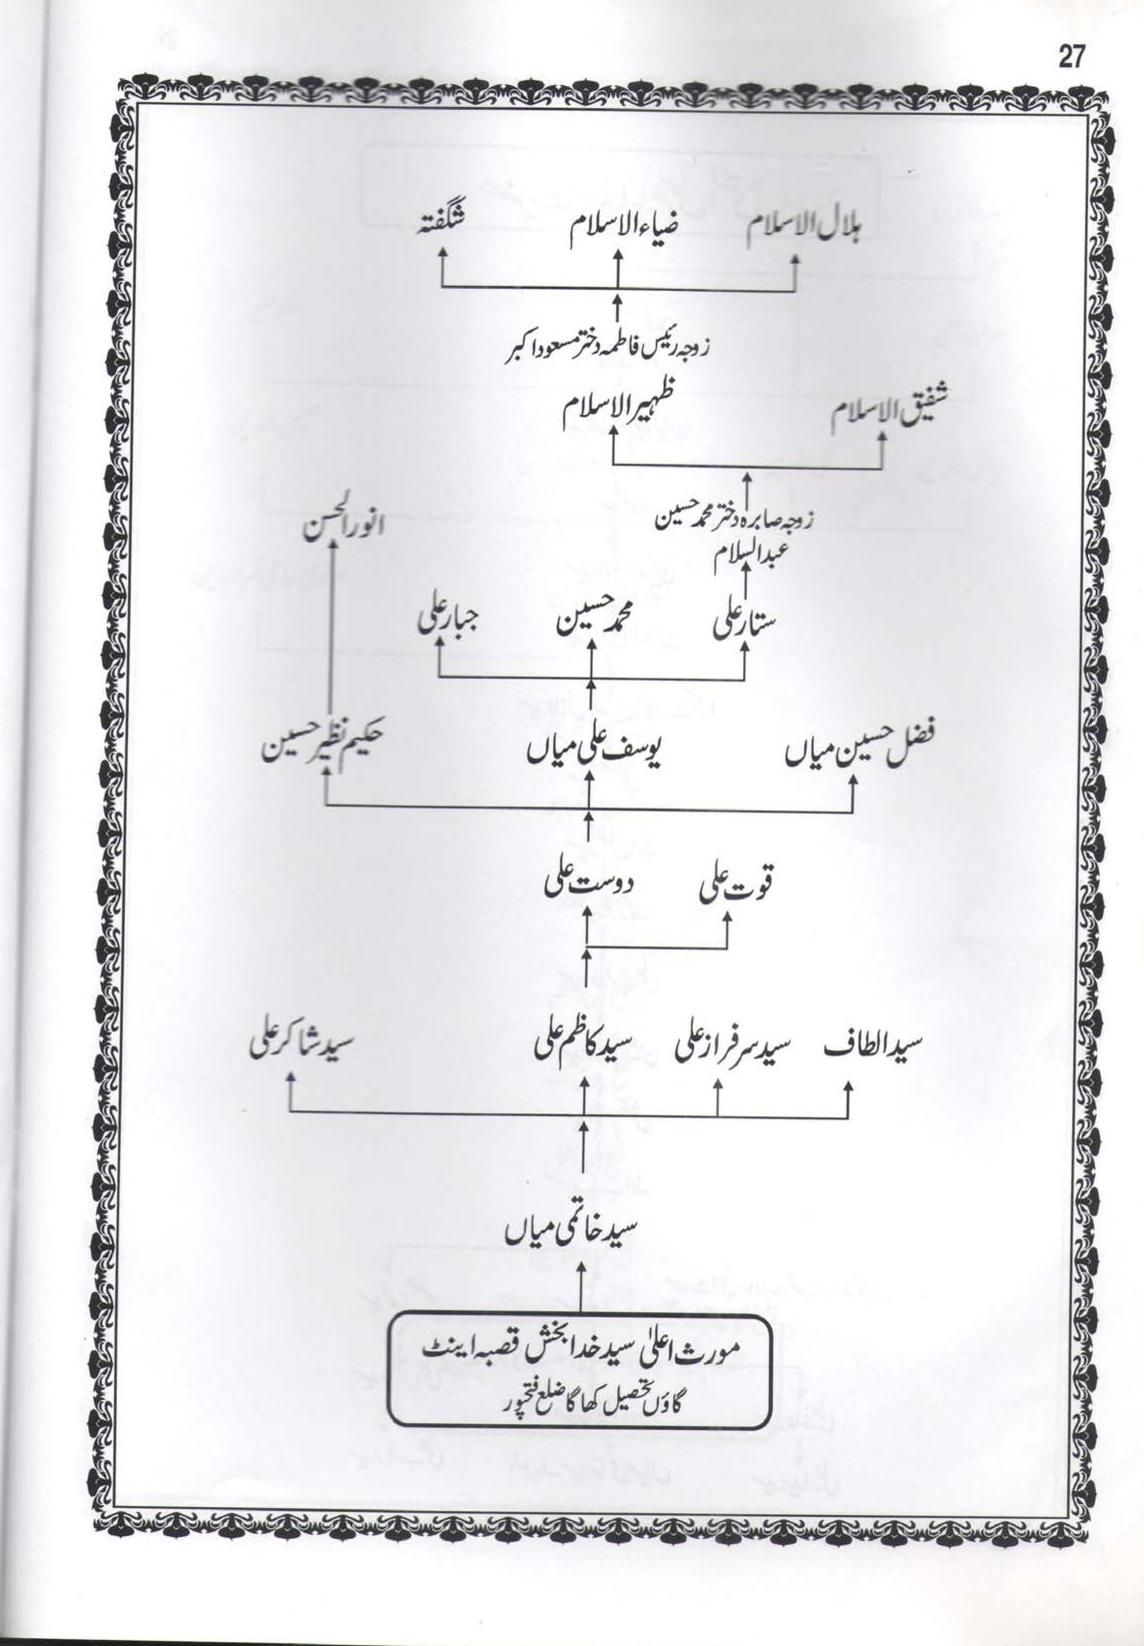 27
ہلال الاسلام ضیاء الاسلام شگفتہ
زوجہ رئیس فاطمہ دختر مسعود اکبر
شفیق الاسلام ظہیر الاسلام
انور الحسن
زوجہ صابرہ دختر محمد حسین
عبدالسلام
ستار علی محمد حسین جبار علی
فضل حسین میاں یوسف علی میاں حکیم نظیر حسین
قوت علی دوست علی
سید الطاف سید سرفراز علی سید کاظم علی سید شاکر علی
سید خاتمی میاں
مورث اعلیٰ سید خدا بخش قصبہ اینٹ
گاؤں تحصیل کھاگا ضلع فتحپور